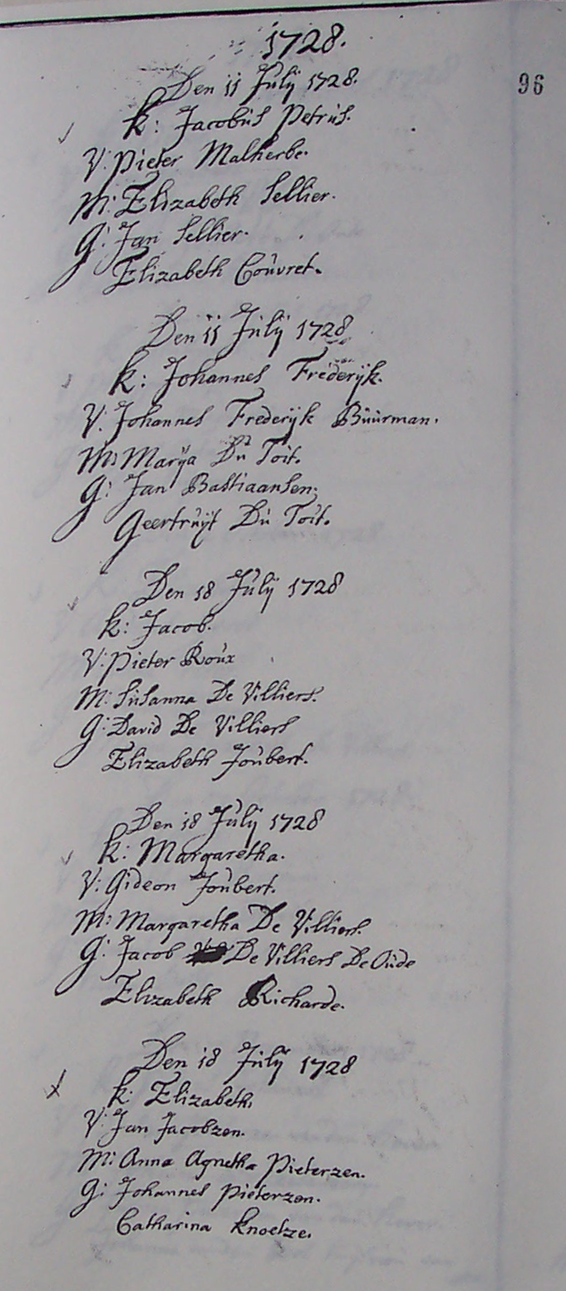 1728.
96
Den 11 Julij 1728.
K: Jacobus Petrus.
V: Pieter Malherbe.
M: Elizabeth Sellier.
G: Jan Sellier.
Elizabeth Couvret.
Den 11 Julij 1728
K: Johannes Frederijk.
V: Johannes Frederijk Buurman.
M: Marija Du Toit.
G: Jan Bastiaansen.
Geertruijt Du Toit.
Den 18 Julij 1728
K: Jacob.
V: Pieter Roux
M: Susanna De Villiers.
G: David De Villiers
Elizabeth Joubert.
Den 18 Julij 1728
K: Margaretha.
V: Gideon Joubert.
M: Margaretha De Villiers.
G: Jacob De Villiers De Oude
Elizabeth Richarde.
Den 18 Julij 1728
K: Elizabeth.
V: Jan Jacobzen.
M: Anna Agnetha Pieterzen.
G: Johannes Pieterzon.
Catharina Knoetze.